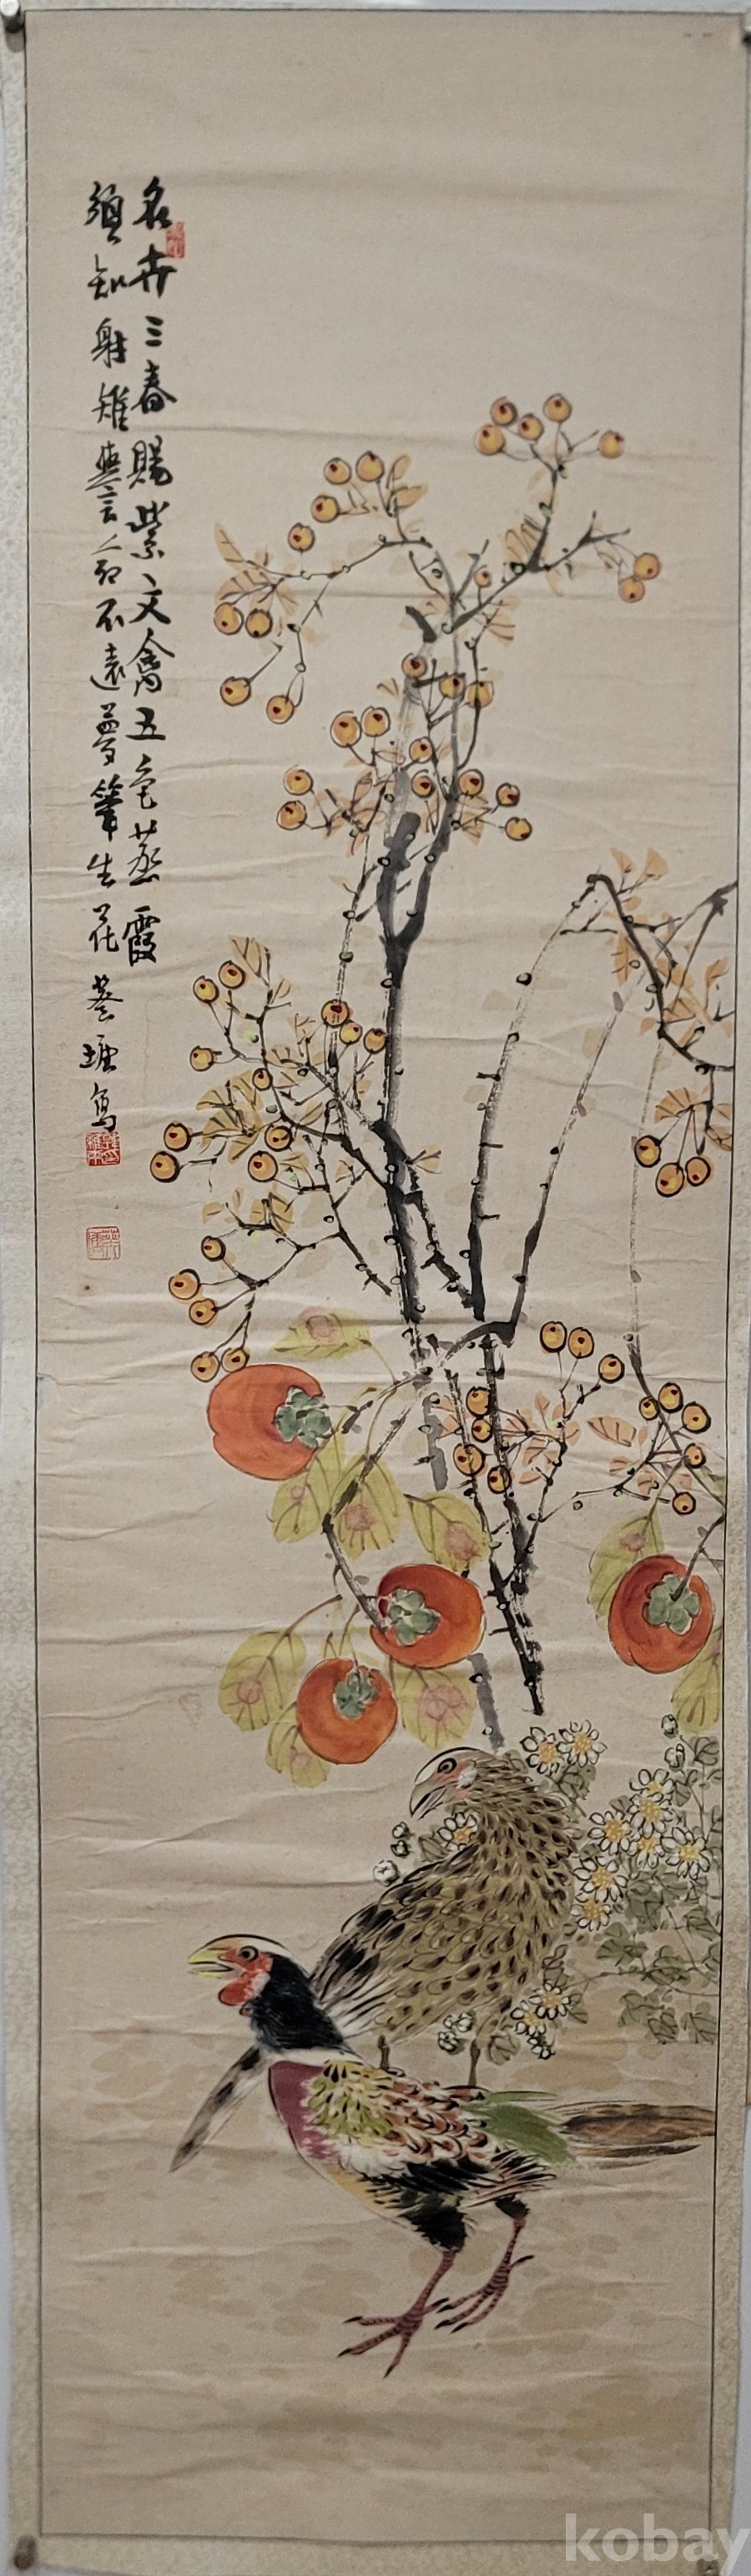 名卉三春賜紫文禽五色蒸霞
須知射雉無言命不遠夢筆生花 葵塘寫
kobay